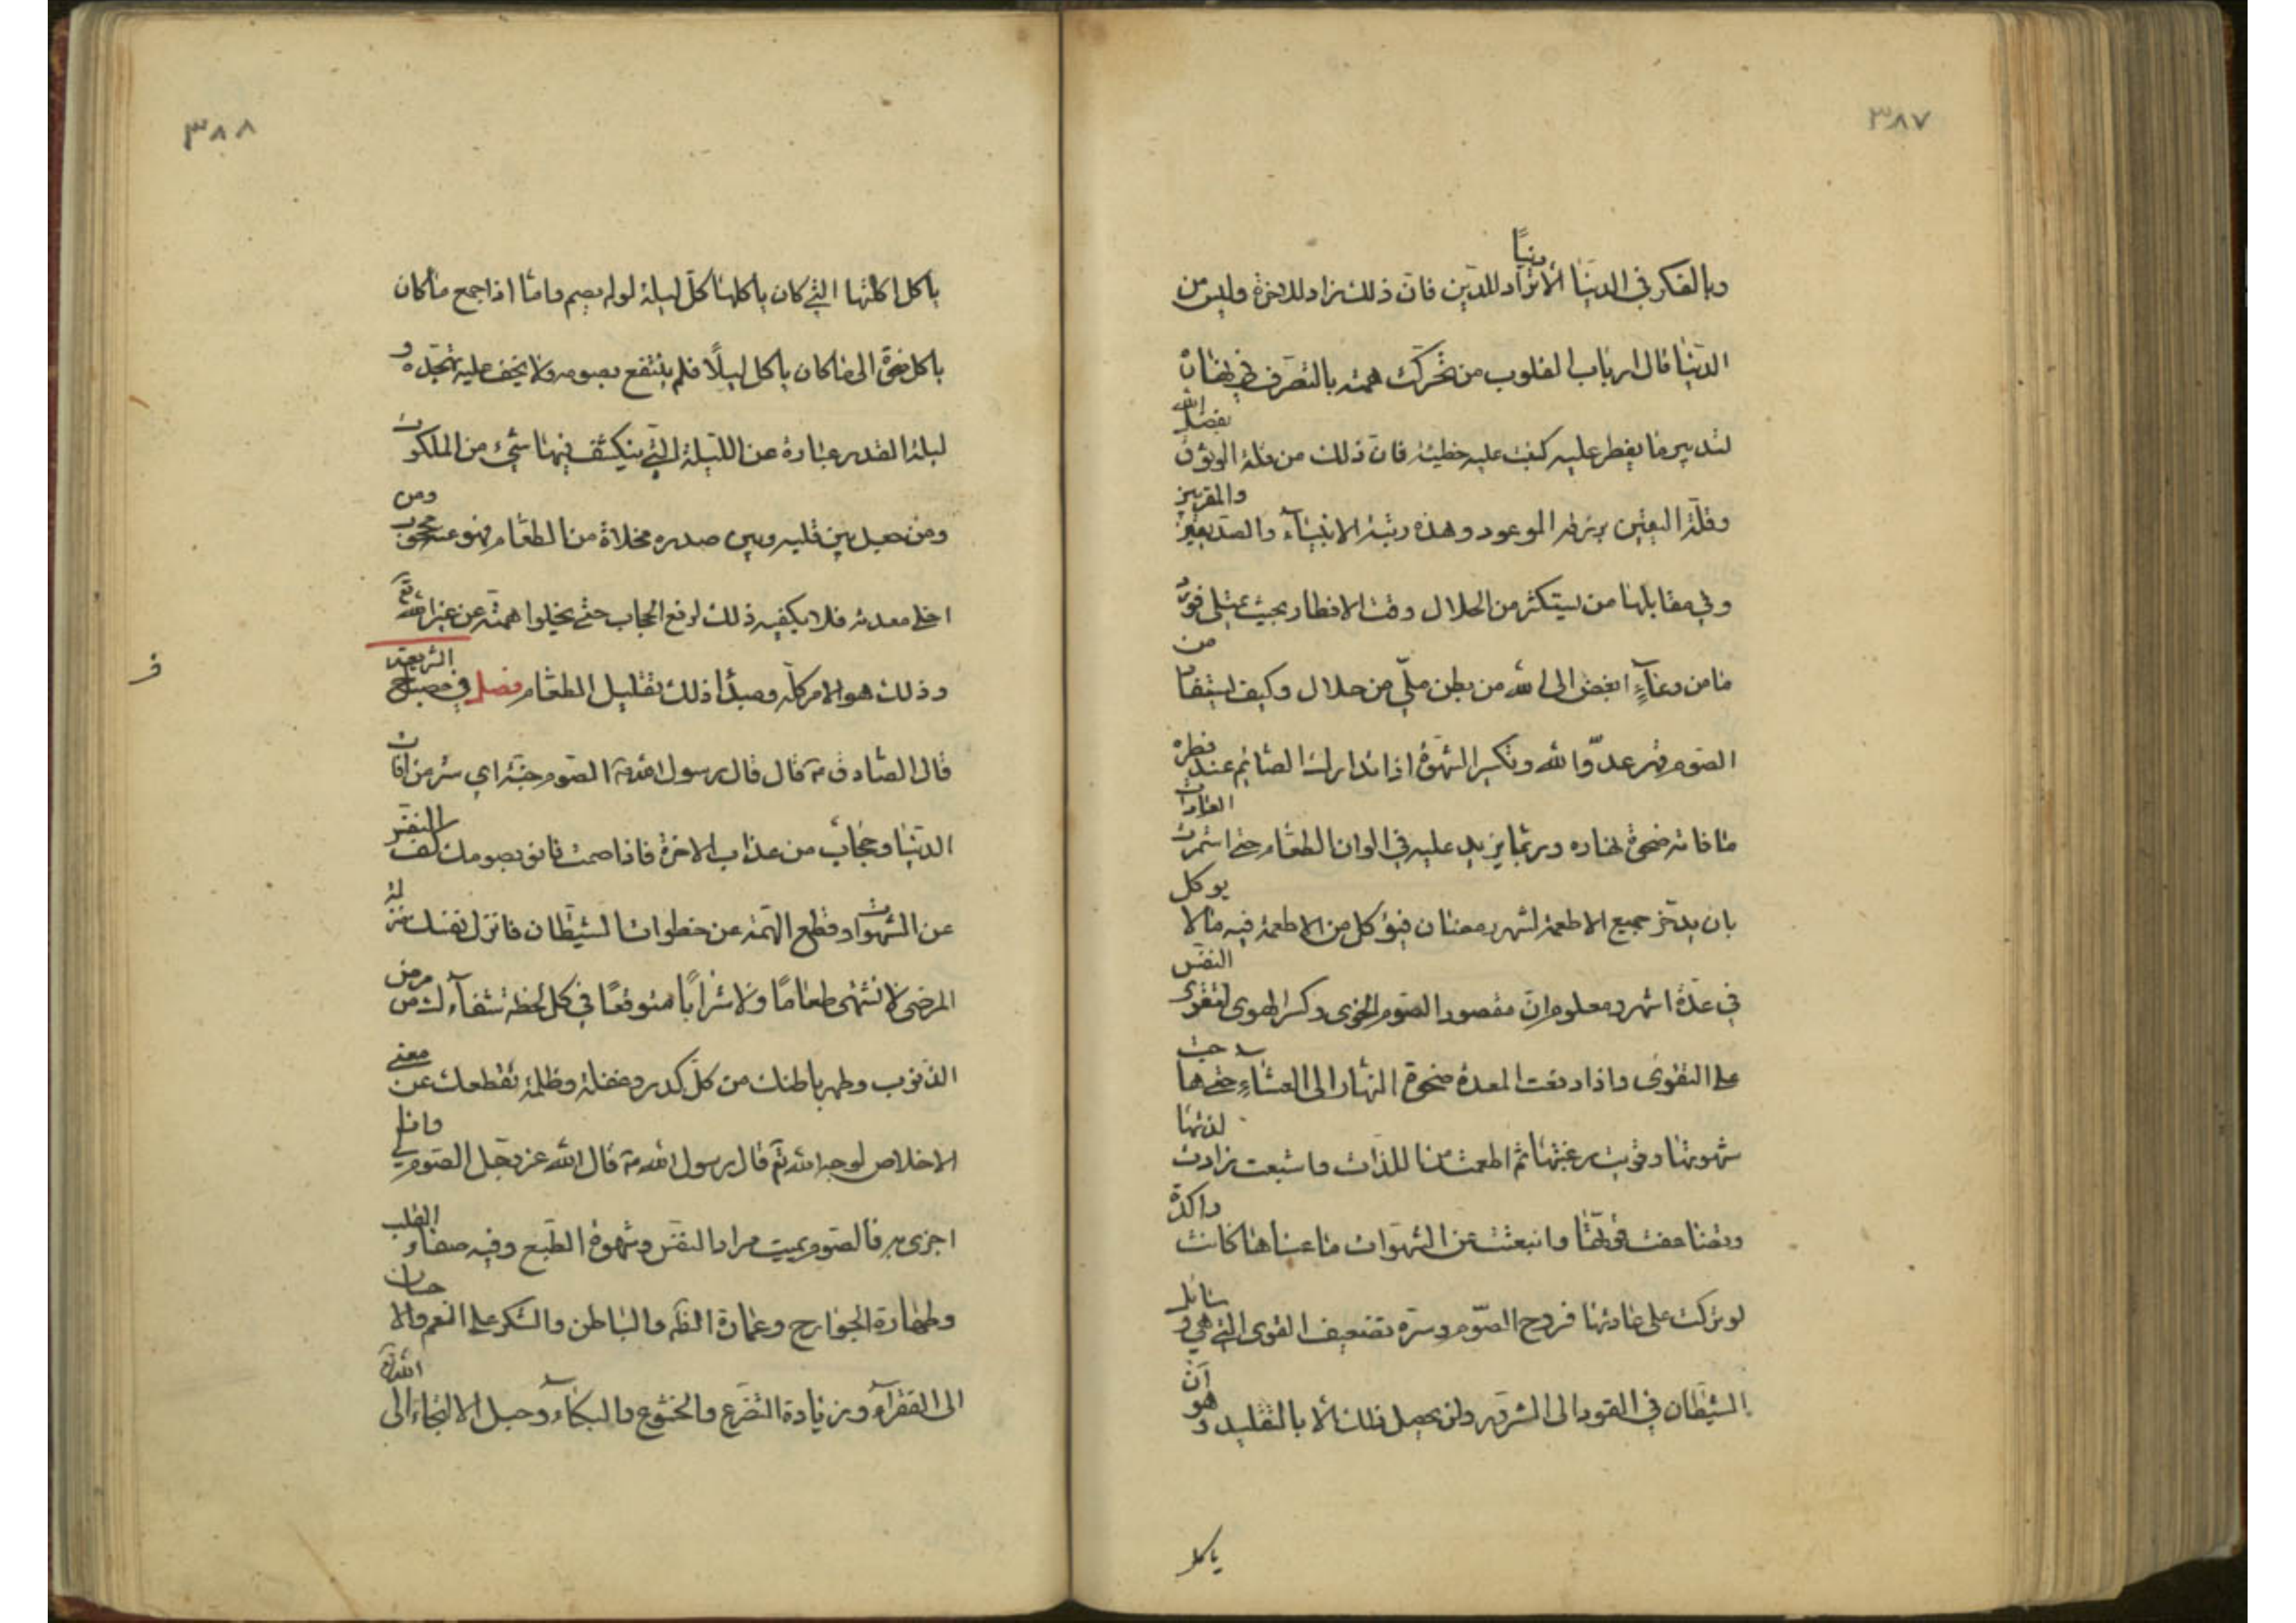 ٣٨٧
وبالفكر في الدنيا الا دنيا تراد للدين فان ذلك زاد للاخرة وليس من
الدنيا قال ارباب القلوب من تحركت همته بالتصرف في نهاره
لتدبير ما يفطر عليه كتبت عليه خطيئة فان ذلك من قلة الوثوق بفضل الله
وقلة اليقين برزقه الموعود وهذه رتبة الانبياء والصديقين والمقربين
وفي مقابلها من يستكثر من الحلال وقت الافطار بحيث يمتلي فوه
فما من وعاء ابغض الى الله من بطن ملّي من حلال وكيف يستفاد من
الصوم قهر عدو الله وتكسر الشهوة اذا تدارك الصائم عند فطره
ما فاته ضحوة نهاره وربما يزيد عليه في الوان الطعام حتى استمرت العادات
بان يدخر جميع الاطعمة لشهر رمضان فيؤكل من الاطعمة فيه ما لا يوكل
في عدة اشهر ومعلوم ان مقصود الصوم الخوى وكسر الهوى لتقوى النفس
على التقوى واذا دفعت المعدة ضحوة النهار الى العشاء حتى هاجت
شهوتها وقويت رغبتها ثم اطعمت من اللذات واشبعت زادت لذتها
وتضاعفت قوتها وانبعثت من الشهوات ما عساها كانت راكدة
لو تركت على عادتها فروح الصوم وسره تضعيف القوى التي هي وسائل
الشيطان في القود الى الشرور ولن يحصل ذلك الا بالتقليل وهو ان
ياكل
٣٨٨
ياكل اكلتها التي كان ياكلها كل ليلة لو لم يصم واما اذا جمع ما كان
ياكل ضحوة الى ما كان ياكل ليلا فلم ينتفع بصومه ولا يخف عليه تهجده و
ليلة القدر عبارة عن الليلة التي ينكشف فيها شيء من الملكوت
ومن جعل بين قلبه وبين صدره مخلاة من الطعام فهو عنه محجوب ومن
اخلى معدته فلا يكفيه ذلك لرفع الحجاب حتى يخلوا همته عن غير الله تع
وذلك هو الامر كله ومبدأ ذلك تقليل الطعام فصل في مصباح الشريعة
ف
قال الصادق ع قال قال رسول الله ص الصوم جنة اي ستر من افات
الدنيا وحجاب من عذاب الاخرة فاذا صمت فانو بصومك كف النفس
عن الشهوات وقطع الهمة عن خطوات الشيطان فانزل نفسك منزلة
المرضى لا تشتهي طعاما ولا شرابا متوقعا في كل لحظة شفاءك من مرض
الذنوب وطهر باطنك من كل كدر وغفلة وظلمة تقطعك عن معنى
الاخلاص لوجه الله تع قال رسول الله ص قال الله عز وجل الصوم لي وانا
اجزي به فالصوم يميت مراد النفس وشهوة الطبع وفيه صفاء القلب
وطهارة الجوارح وعمارة الظاهر والباطن والشكر على النعم والاحسان
الى الفقراء وزيادة التضرع والخشوع والبكاء وحبل الالتجاء الى الله تع